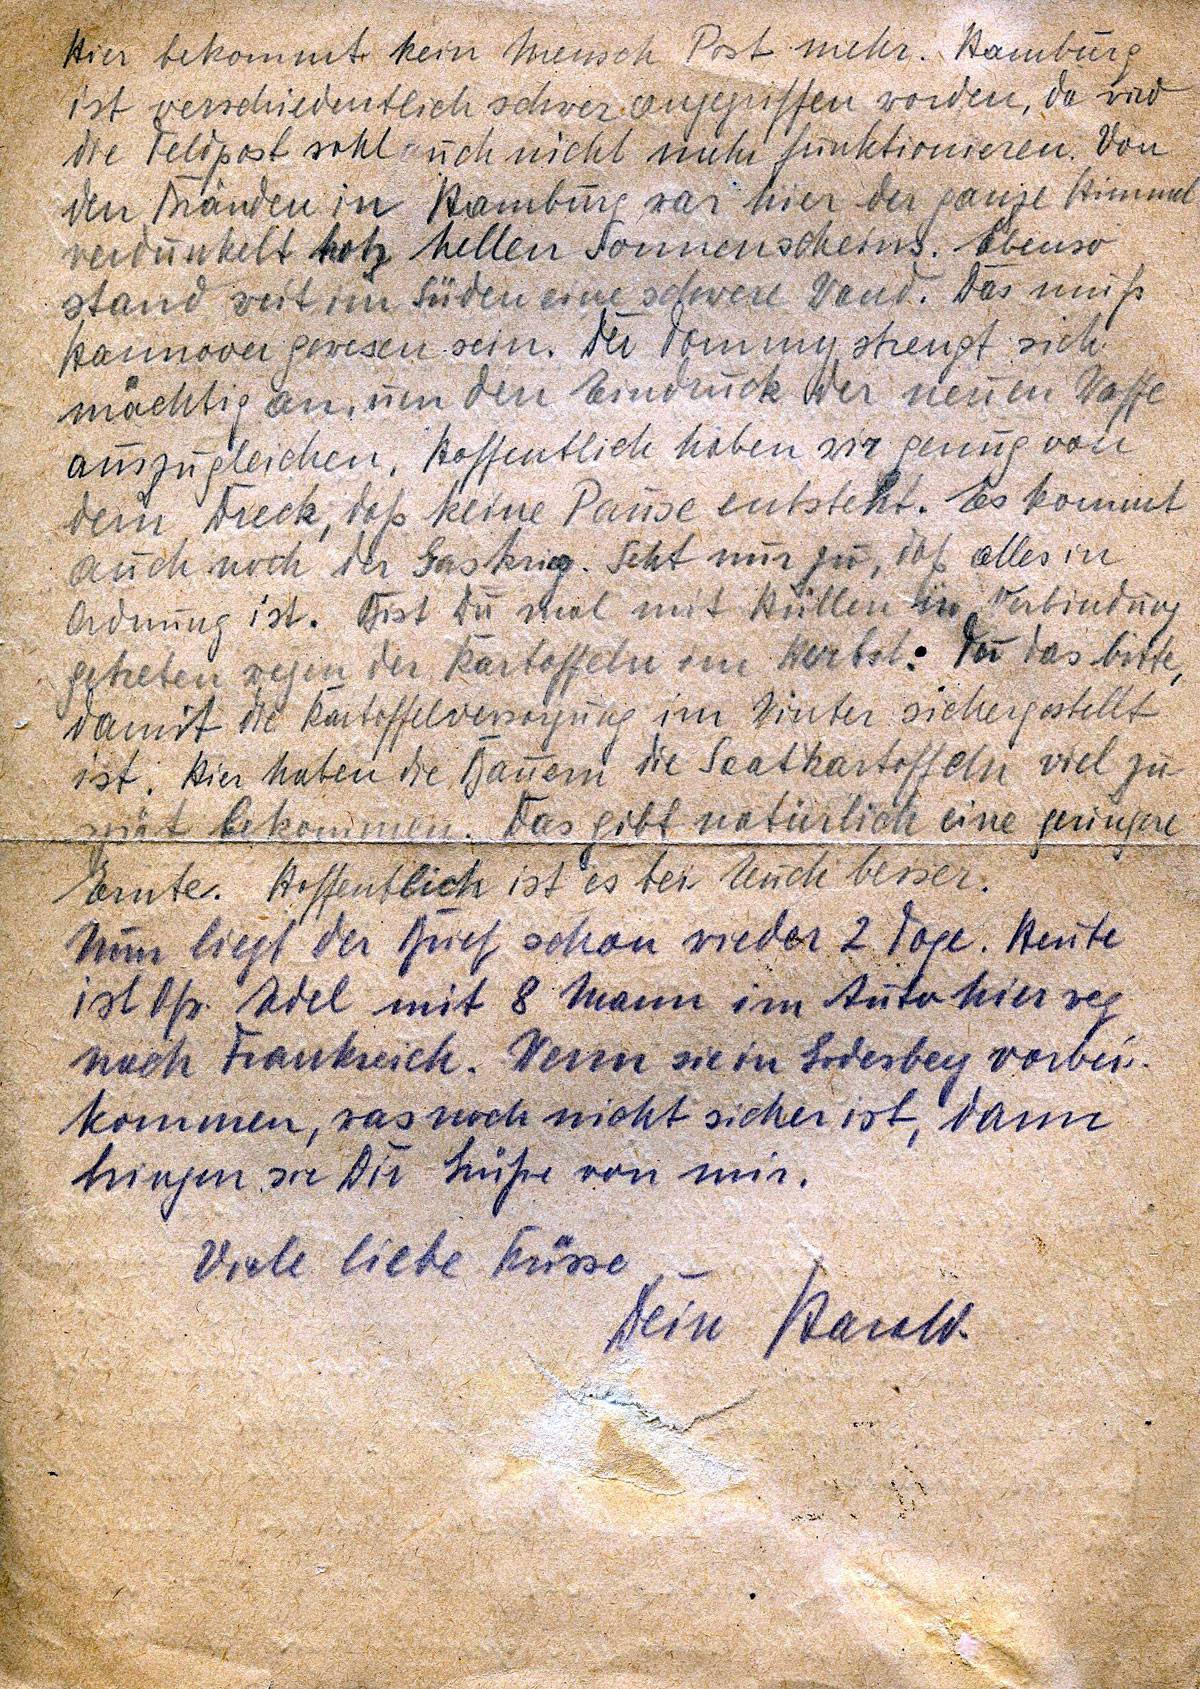 Hier bekommt kein Mensch Post mehr. Hamburg
ist verschiedentlich schwer angegriffen worden, da wird
die Feldpost wohl auch nicht mehr funktionieren. Von
den Bränden in Hamburg war hier der ganze Himmel
verdunkelt trotz hellen Sonnenscheins. Ebenso
stand weit im Süden eine schwere Wand. Das muß
Hannover gewesen sein. Der Tommy strengt sich
mächtig an, um den Eindruck der neuen Waffe
auszugleichen. Hoffentlich haben wir genug von
dem Dreck, daß keine Pause entsteht. Es kommt
auch noch der Gaskrieg. Seht nur zu, daß alles in
Ordnung ist. Bist Du mal mit Hüllen in Verbindung
getreten wegen der Kartoffeln im Herbst. Tu das bitte,
damit die Kartoffelversorgung im Winter sichergestellt
ist. Hier haben die Bauern die Saatkartoffeln viel zu
spät bekommen. Das gibt natürlich eine geringere
Ernte. Hoffentlich ist es bei Euch besser.
Nun liegt der Brief schon wieder 2 Tage. Heute
ist Udel mit 8 Mann im Auto hier weg
nach Frankreich. Wenn sie in Godesberg vorbei-
kommen, was noch nicht sicher ist, dann
bringen sie Dir Grüße von mir.
Viele liebe Küsse
Dein Harald.